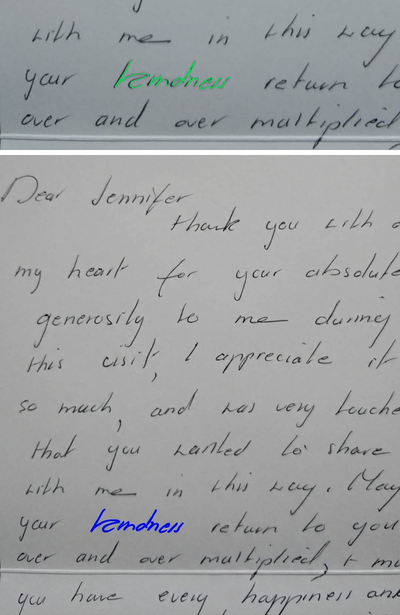 with me in this way
your kindness return to
over and over multiplied
Dear Jennifer
thank you with a
my heart for your absolute
generosity to me during
this visit, I appreciate it
so much, and was very touche
that you wanted to share
with me in this way. May
your kindness return to you
over and over multiplied,
you have every happiness and